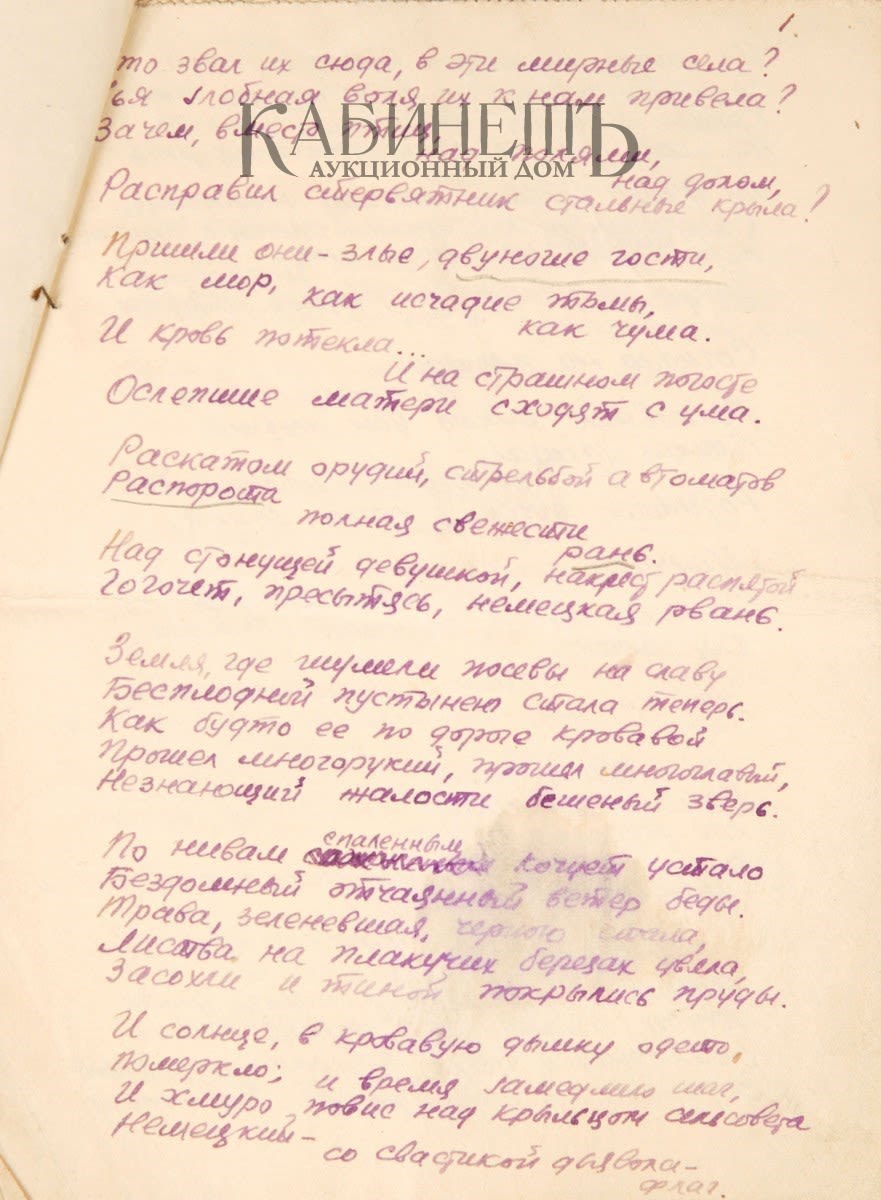 1.
то звал их сюда, в эти мирные села?
ья злобная воля их к нам привела?
КАБИНЕТЪ
АУКЦИОННЫЙ ДОМ
Зачем, вместо птиц,
над полями,
над долом,
Расправил стервятник стальные крыла?
Пришли они – злые, двуногие гости,
Как мор,
как исчадие тьмы,
как чума.
И кровь потекла...
И на страшном погосте
Ослепшие матери сходят с ума.
Раскатом орудий, стрельбой автоматов
Распорота
полная свежести
рань.
Над стонущей девушкой, накрест распятой
Гогочет, пресытясь, немецкая рвань.
Земля, где шумели посевы на славу
Бесплодной пустынею стала теперь.
Как будто ее по дороге кровавой
Прошел многорукий, прошел многоглавый,
Незнающий жалости бешеный зверь.
По нивам спаленным кочует устало
Бездомный отчаянный ветер беды.
Трава, зеленевшая, черною стала,
Листва на плакучих березах увяла,
Засохли и тиной покрылись пруды.
И солнце, в кровавую дымку одето,
Померкло; и время замедлило шаг,
И хмуро повис над крыльцом сельсовета
Немецкий –
со свастикой дьявола –
флаг.